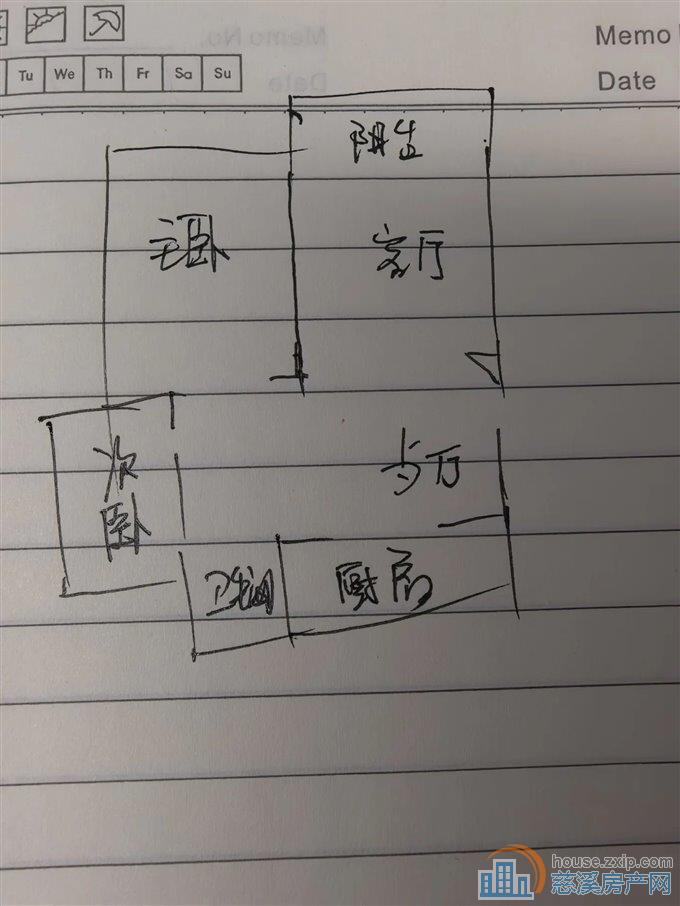 Memo
Date
Tu We Th Fr Sa Su
阳台
主卧
客厅
次
卧
卫生间
厨房
house.zxip.com
慈溪房产网